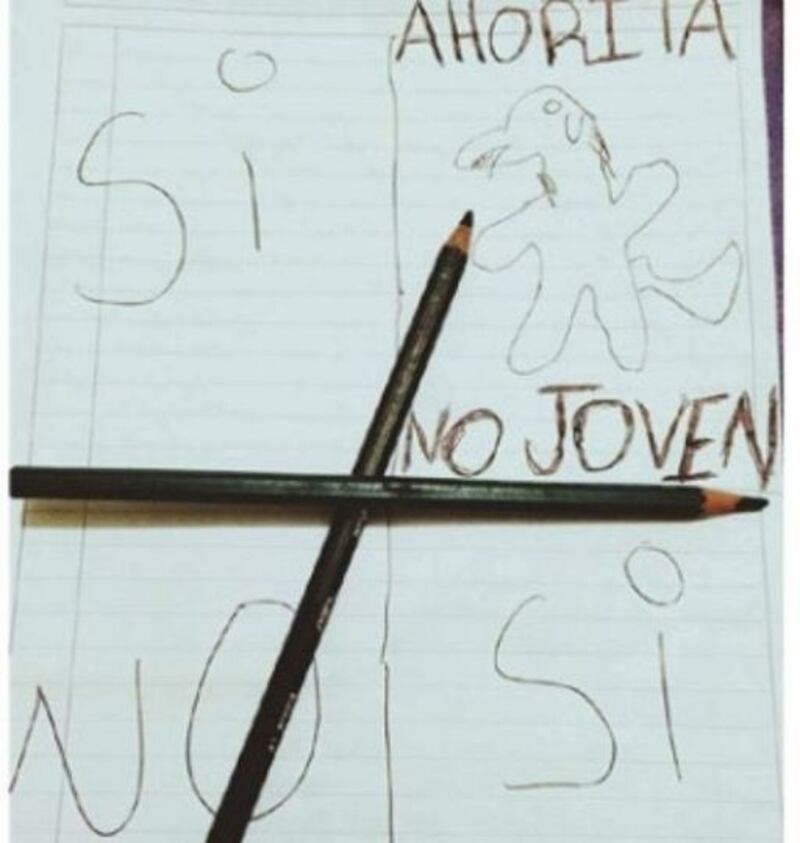 Si
AHORITA
NO JOVEN
NO
Si